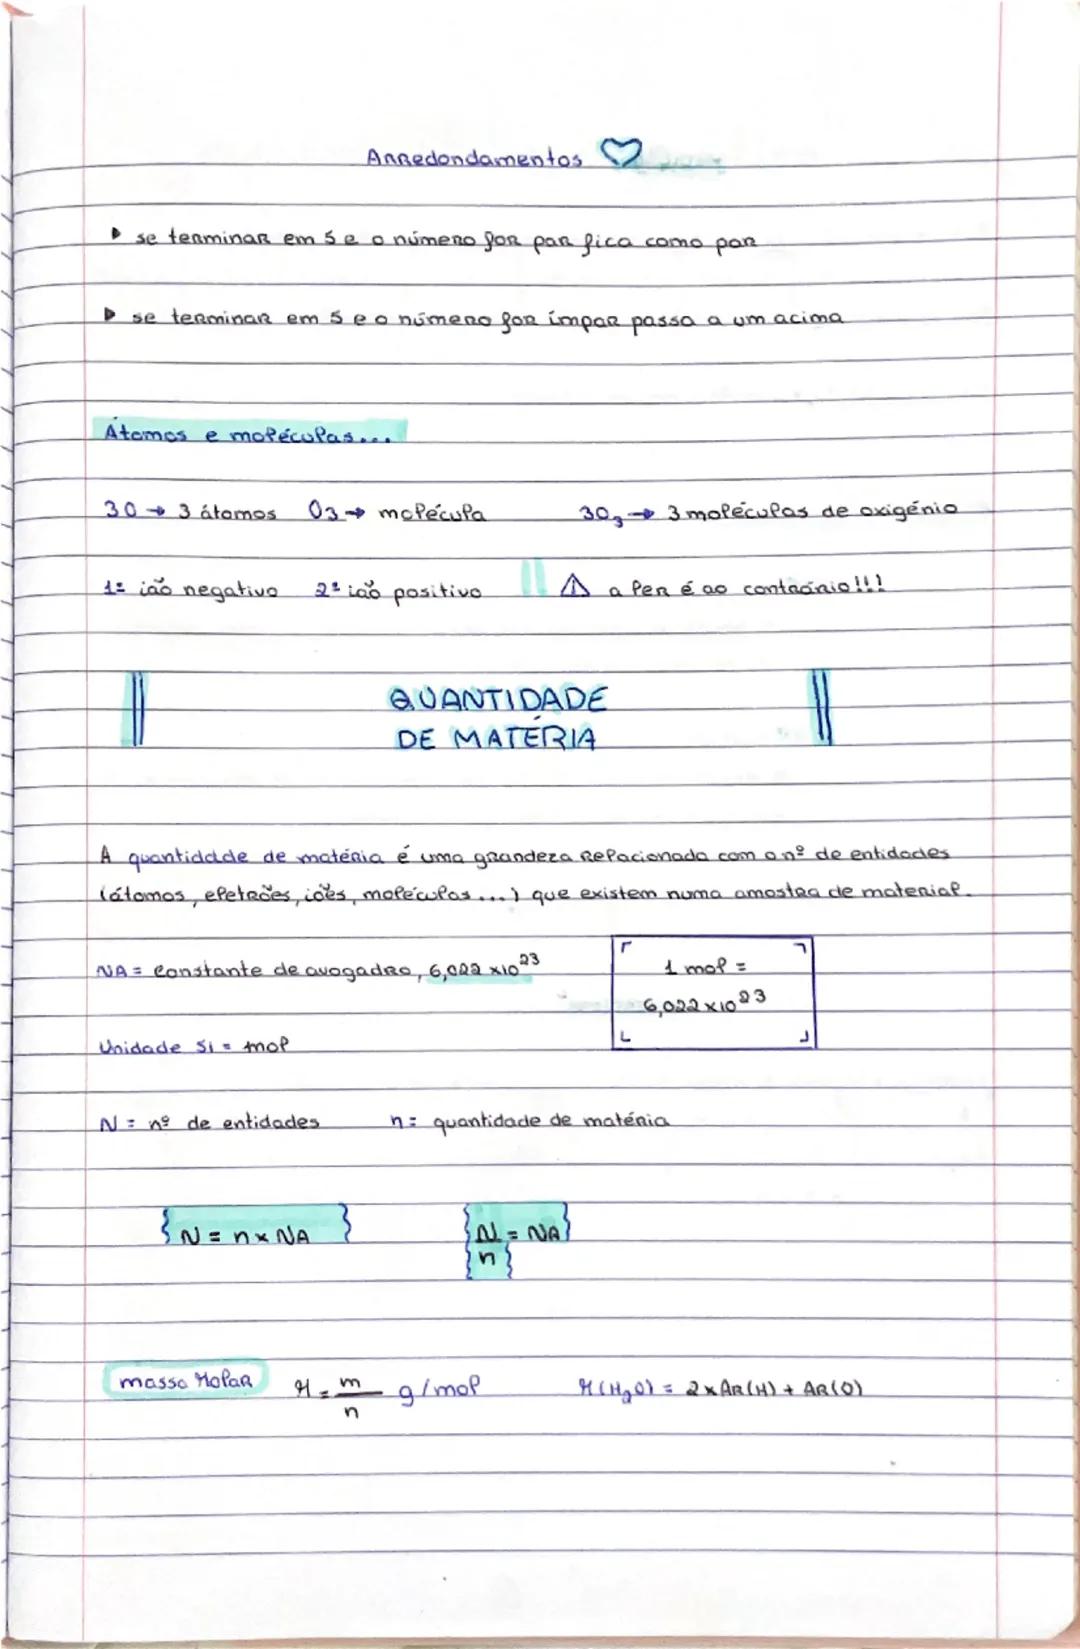 Arredondamentos
se terminar em 5 e o número for par fica como par
se terminar em 5 e o número for ímpar passa a um acima
Átomos e moléculas...
3O → 3 átomos O3 → molécula 3O₃ → 3 moléculas de oxigénio
1º ião negativo 2º ião positivo ⚠ a ler é ao contrário!!!
QUANTIDADE
DE MATÉRIA
A quantidade de matéria é uma grandeza relacionada com o nº de entidades
(átomos, eletrões, iões, moléculas...) que existem numa amostra de material.
NA = constante de avogadro, 6,022 x10²³
1 mol =
6,022 x 10²³
Unidade SI = mol
N = nº de entidades n = quantidade de matéria
N = n x NA
N/n = NA
massa Molar M = m/n g/mol M(H₂O) = 2 x AR(H) + AR(O)